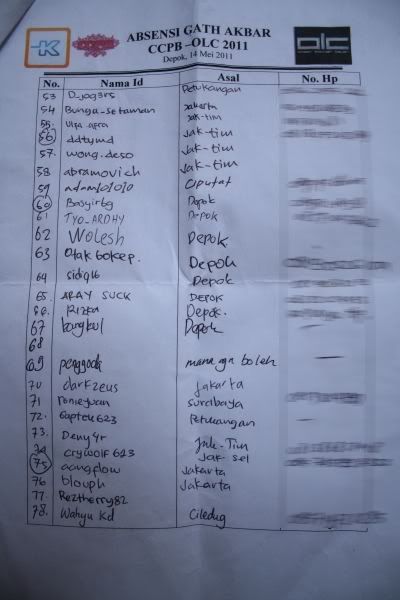 K
olc
ABSENSI GATH AKBAR
CCPB –OLC 2011
Depok, 14 Mei 2011
No. Nama Id Asal No. Hp
53 D_jag3rs Petukangan
54 Bunga-setaman jakarta
55. jak-tim
56 ddtymd Jak-tim
57. wong.deso Jak-tim
58 abramovich Jak-tim
59 adam101010 Ciputat
60 Basyir69 Depok
61 TYO_ARDHY Depok
62 Wolesh Depok
63 Otak bokep. Depok
64 sidiq16 Depok
65. ARAY SUCK DEPOK
66. Rizka Depok.
67 bangkul Depok
68
69 penggoda mana aja boleh
70 darkzeus jakarta
71 surabaya
72. gaptek623 Petukangan
73. Deny4r Jak-Tim
74 crywolf623 Jak-sel
75 aangflow Jakarta
76 blouph Jakarta
77. Reztherry82
78. Wahyu Kd Ciledug